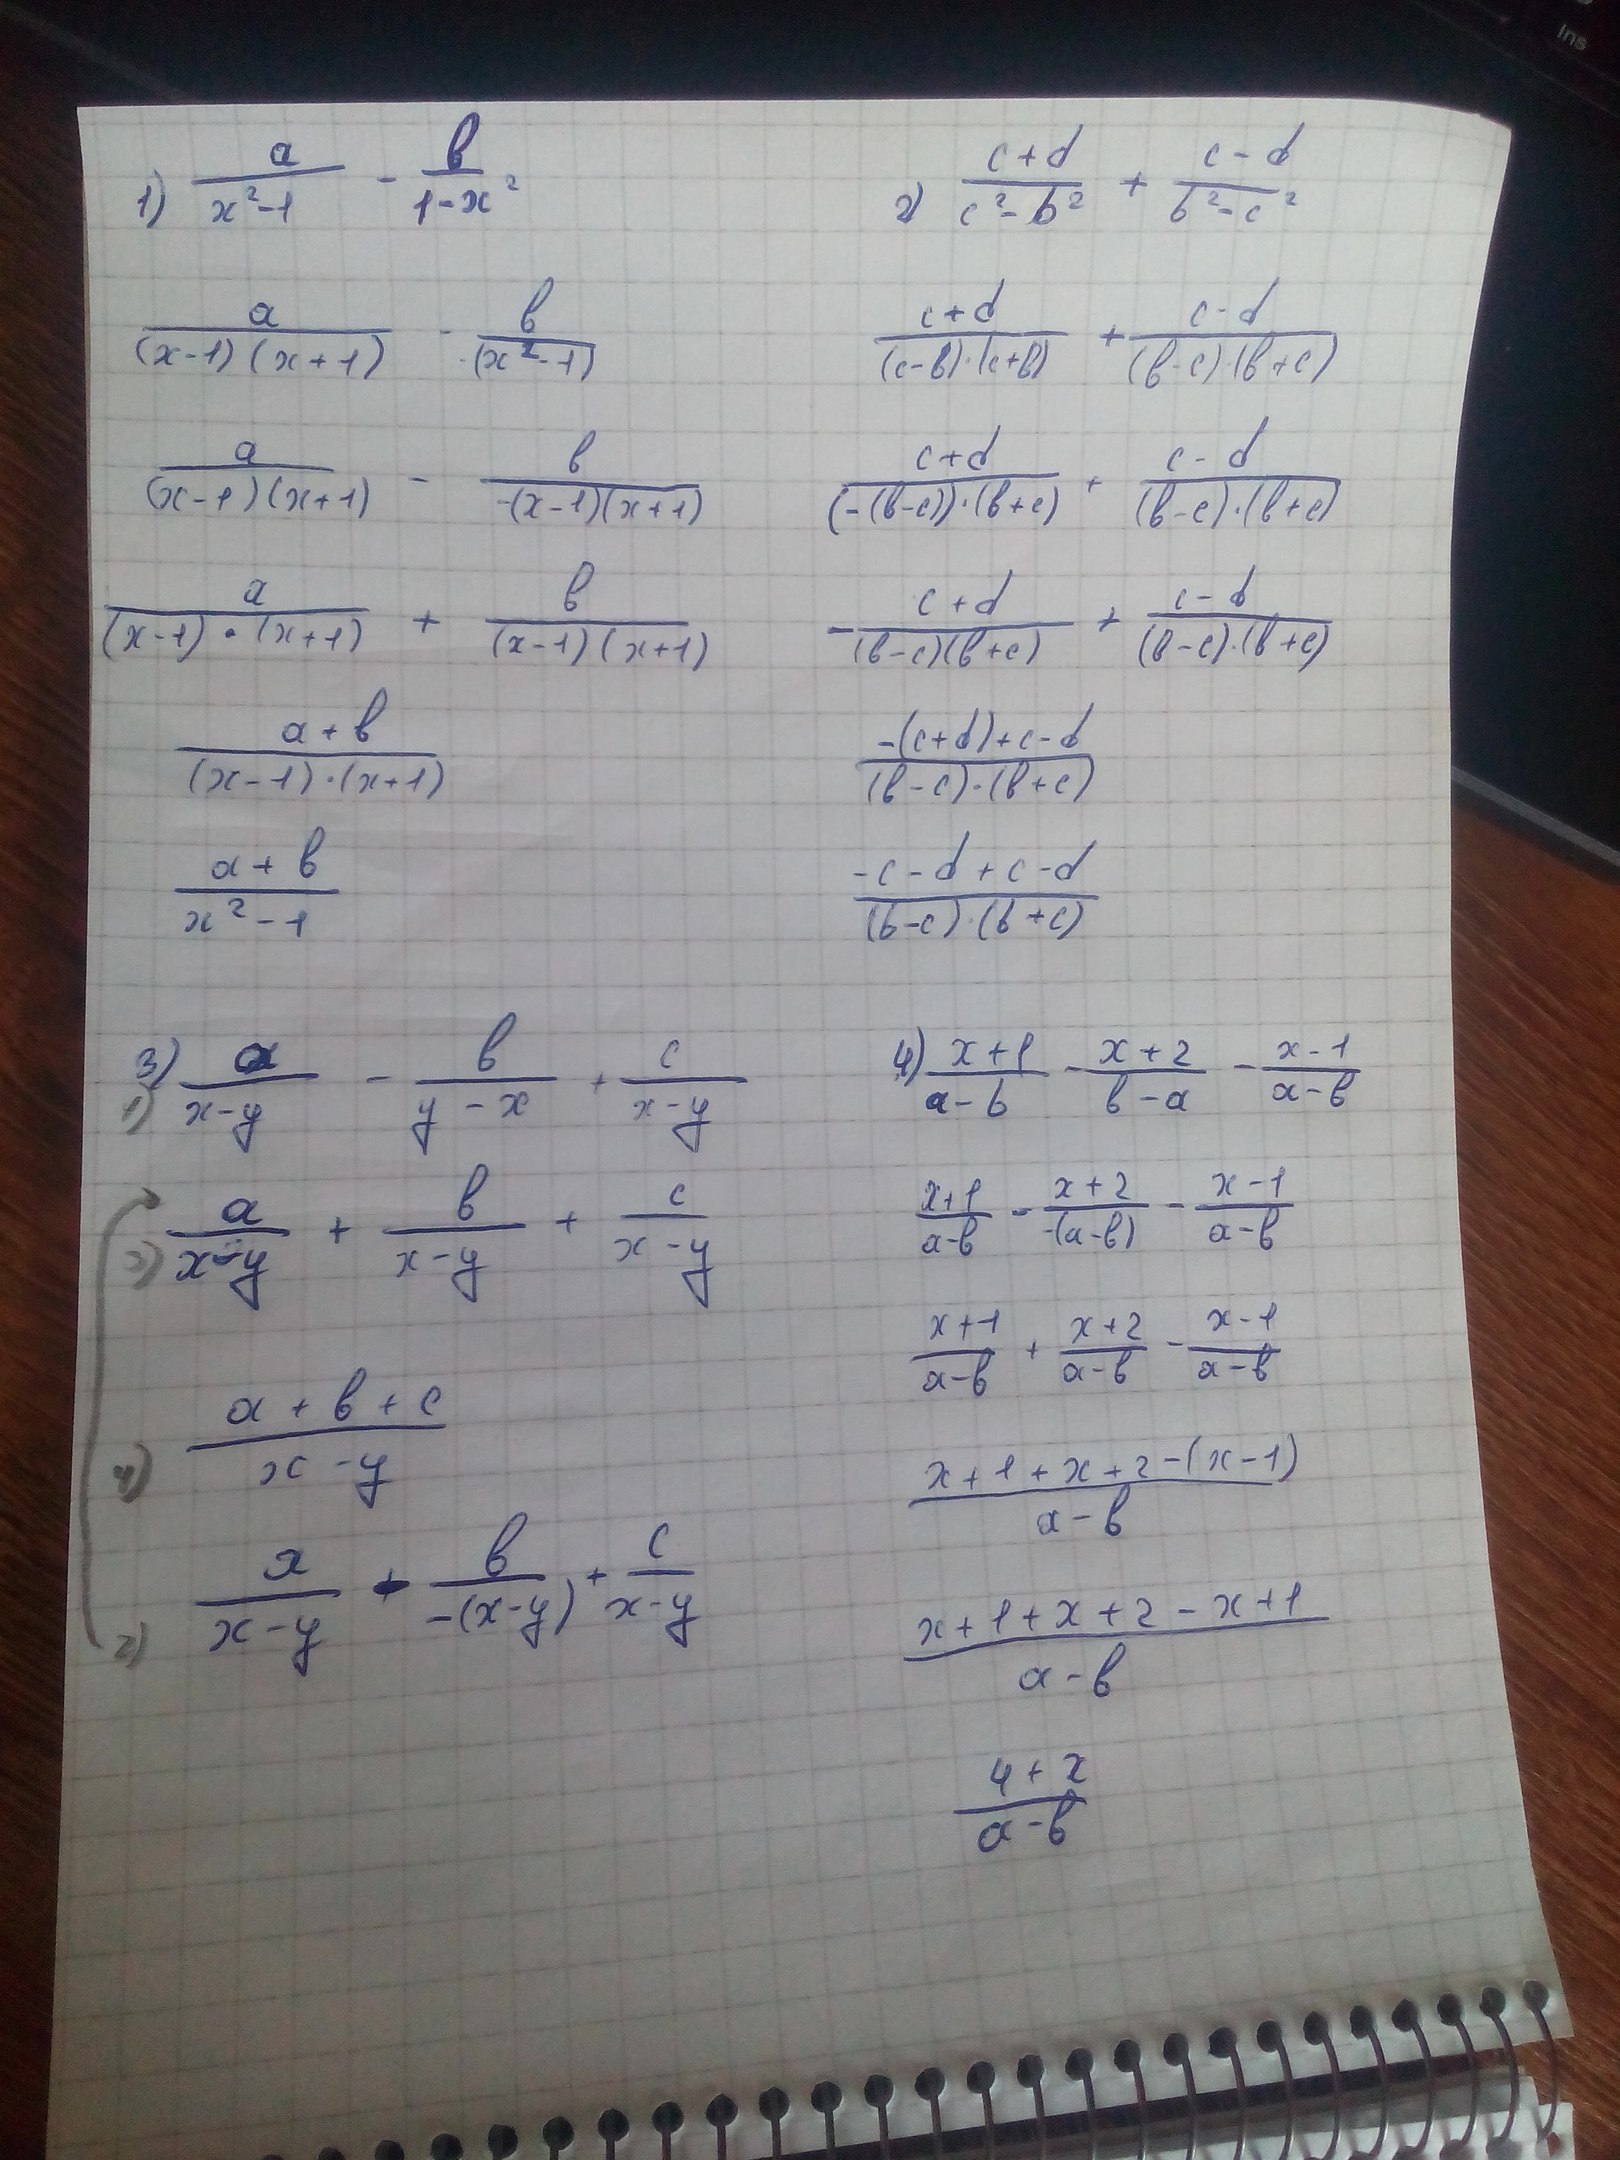 Ins
1) a/(x²-1) - b/(1-x²)
a/((x-1)(x+1)) - b/(-(x²-1))
a/((x-1)(x+1)) - b/(-(x-1)(x+1))
a/((x-1)·(x+1)) + b/((x-1)(x+1))
(a+b)/((x-1)·(x+1))
(a+b)/(x²-1)
2) (c+d)/(c²-b²) + (c-d)/(b²-c²)
(c+d)/((c-b)·(c+b)) + (c-d)/((b-c)·(b+c))
(c+d)/((-(b-c))·(b+c)) + (c-d)/((b-c)·(b+c))
-(c+d)/((b-c)(b+c)) + (c-d)/((b-c)·(b+c))
(-(c+d)+c-d)/((b-c)·(b+c))
(-c-d+c-d)/((b-c)·(b+c))
3)
1) a/(x-y) - b/(y-x) + c/(x-y)
3) a/(x-y) + b/(x-y) + c/(x-y)
4) (a+b+c)/(x-y)
2) a/(x-y) - b/(-(x-y)) + c/(x-y)
4) (x+1)/(a-b) - (x+2)/(b-a) - (x-1)/(a-b)
(x+1)/(a-b) - (x+2)/(-(a-b)) - (x-1)/(a-b)
(x+1)/(a-b) + (x+2)/(a-b) - (x-1)/(a-b)
(x+1+x+2-(x-1))/(a-b)
(x+1+x+2-x+1)/(a-b)
(4+x)/(a-b)